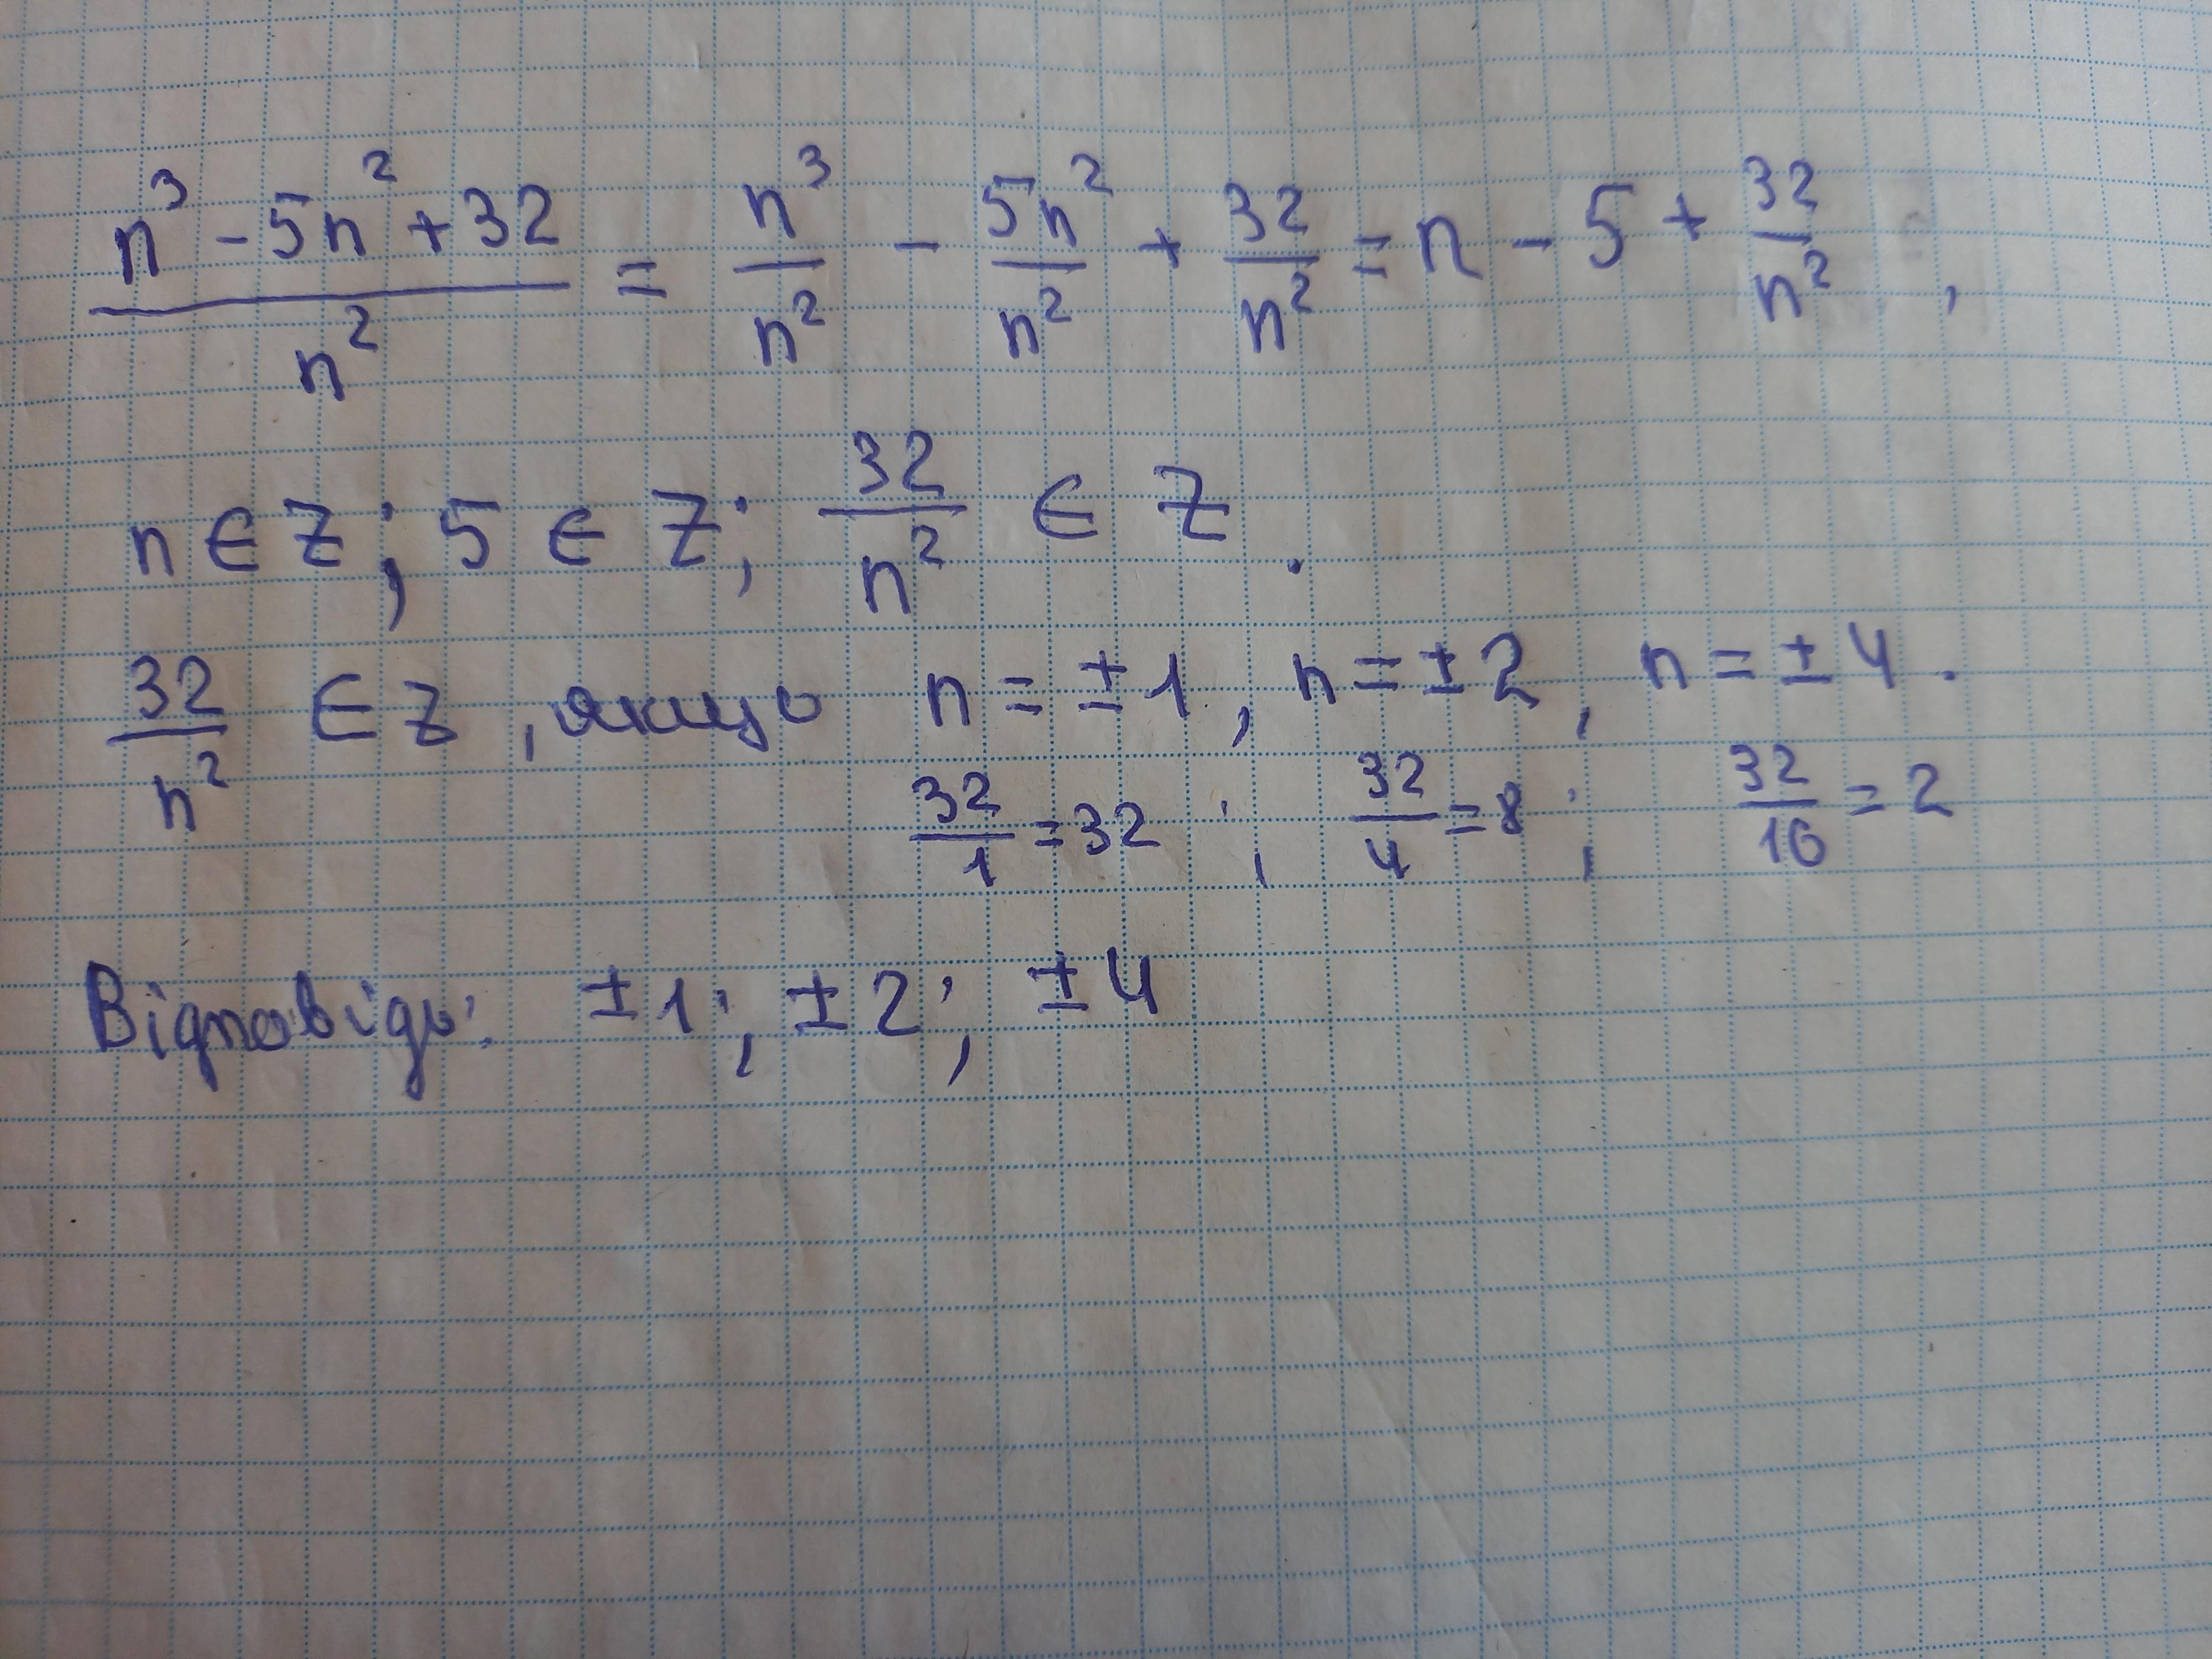 (n³ - 5n² + 32)/n² = n³/n² - 5n²/n² + 32/n² = n - 5 + 32/n²,
n ∈ Z; 5 ∈ Z; 32/n² ∈ Z.
32/n² ∈ Z, якщо n = ±1, n = ±2, n = ±4.
32/1 = 32; 32/4 = 8; 32/16 = 2
Відповідь: ±1; ±2; ±4